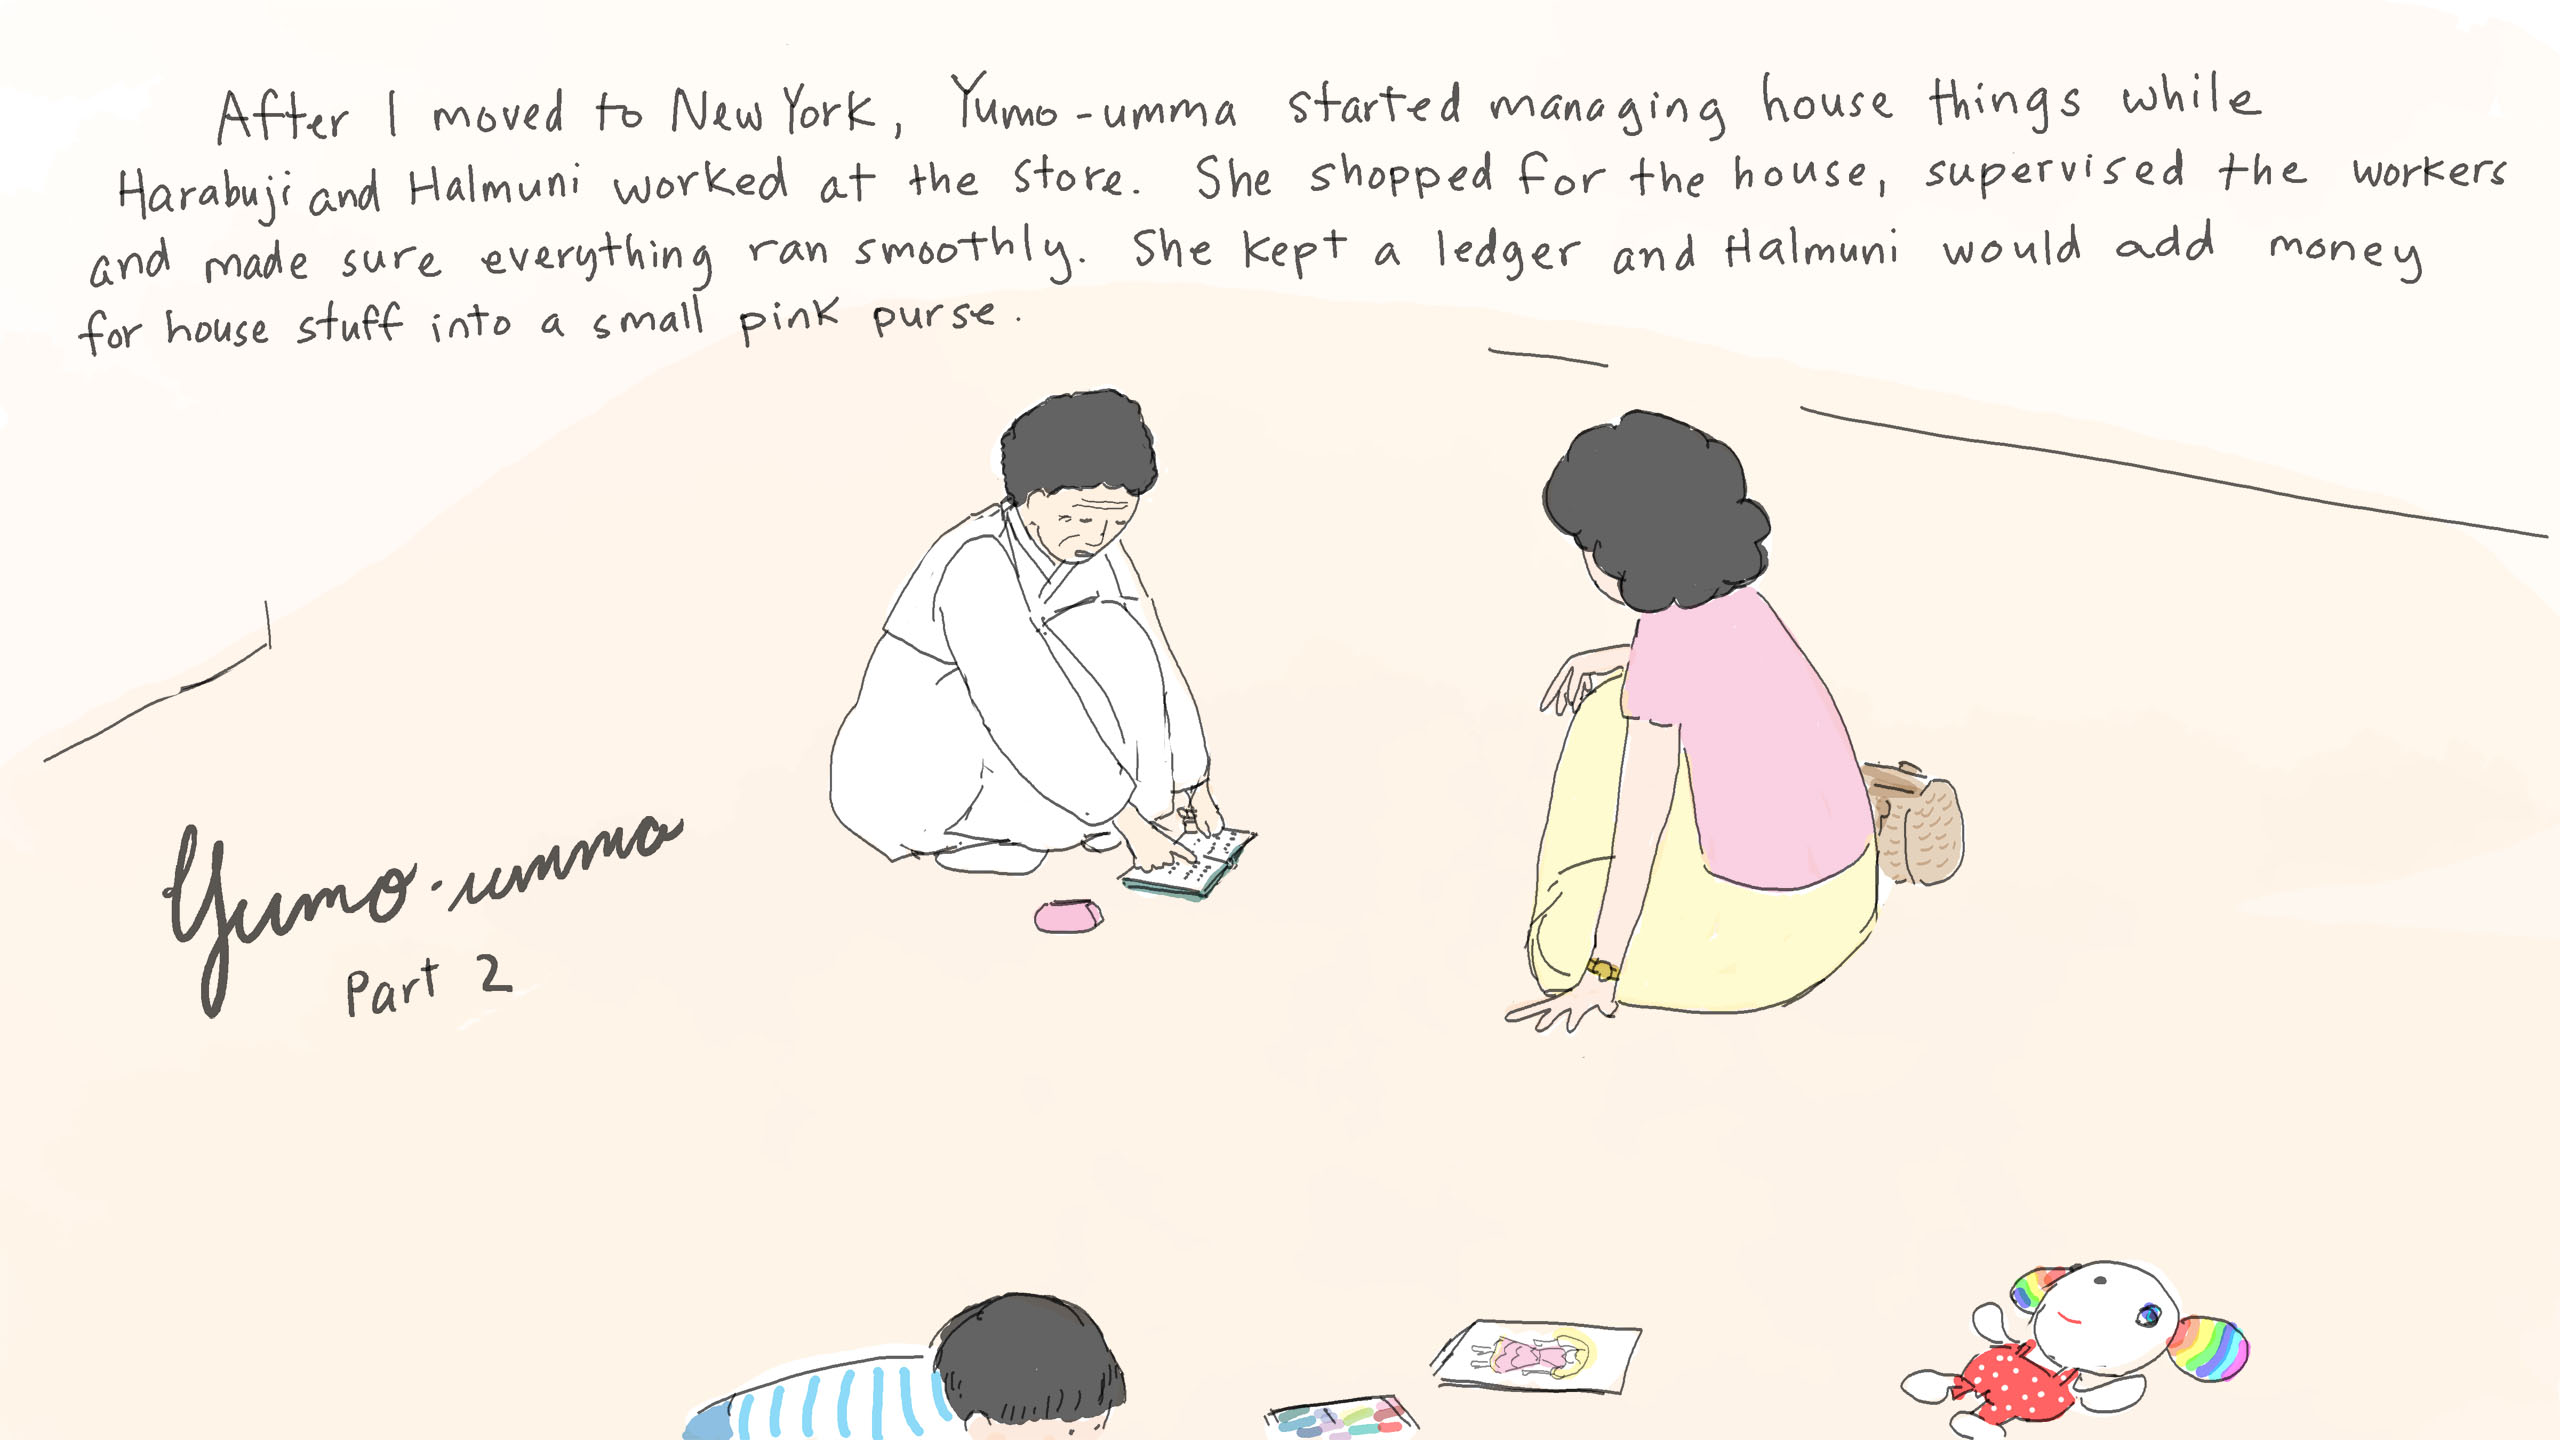 After I moved to New York, Yumo-umma started managing house things while
Harabuji and Halmuni worked at the store. She shopped for the house, supervised the workers
and made sure everything ran smoothly. She kept a ledger and Halmuni would add money
for house stuff into a small pink purse.
Yumo-umma
Part 2